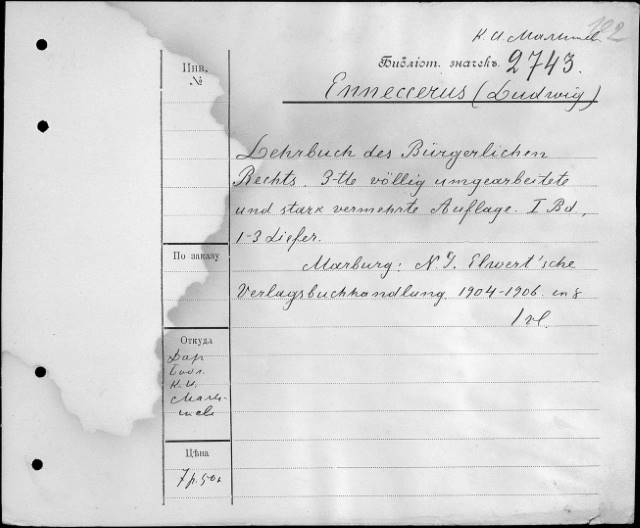 К. И Малышев
122
Библіот. значекъ. 2743.
Enneccerus (Ludwig)
Инв.
№
Lehrbuch des Bürgerlichen
Rechts. 3-tte völlig umgearbeitete
und stark vermehrte Auflage. I Bd,
1-3 Liefer.
По заказу
Marburg: N. G. Elwert'sche
Verlagsbuchhandlung. 1904-1906. in 8
1 vl.
Откуда
Дар
К. И.
Малы-
шева
Цѣна
7 р. 50 к